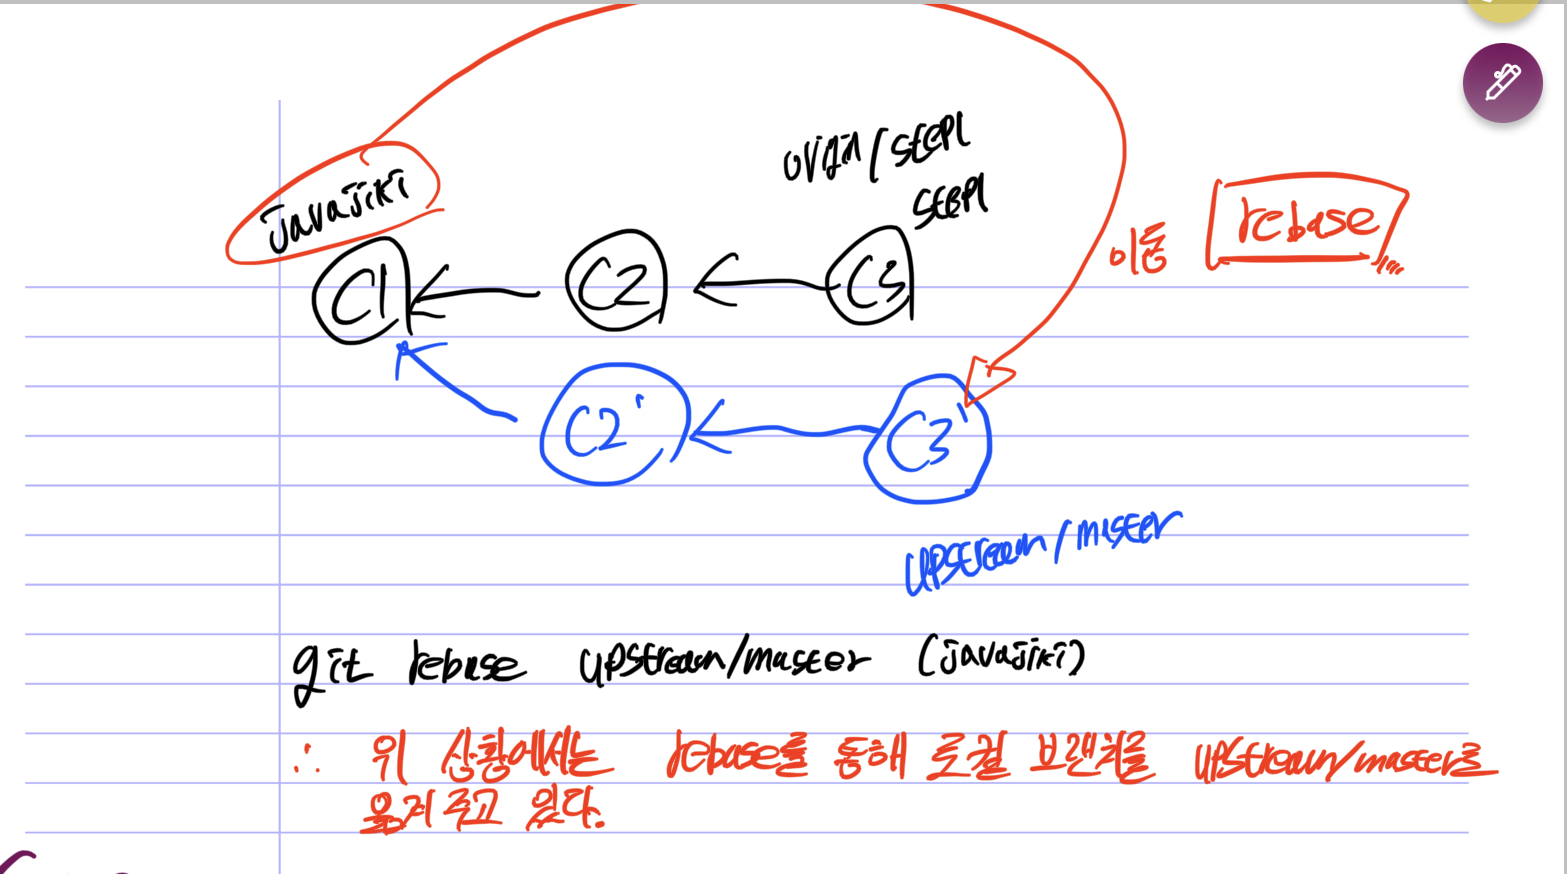 origin/step1
step1
javajiki
C1
C2
C3
이동
rebase
C2'
C3'
upstream/master
git rebase upstream/master (javajiki)
∴ 위 상황에서는 rebase를 통해 로컬 브랜치를 upstream/master로
옮겨 주고 있다.